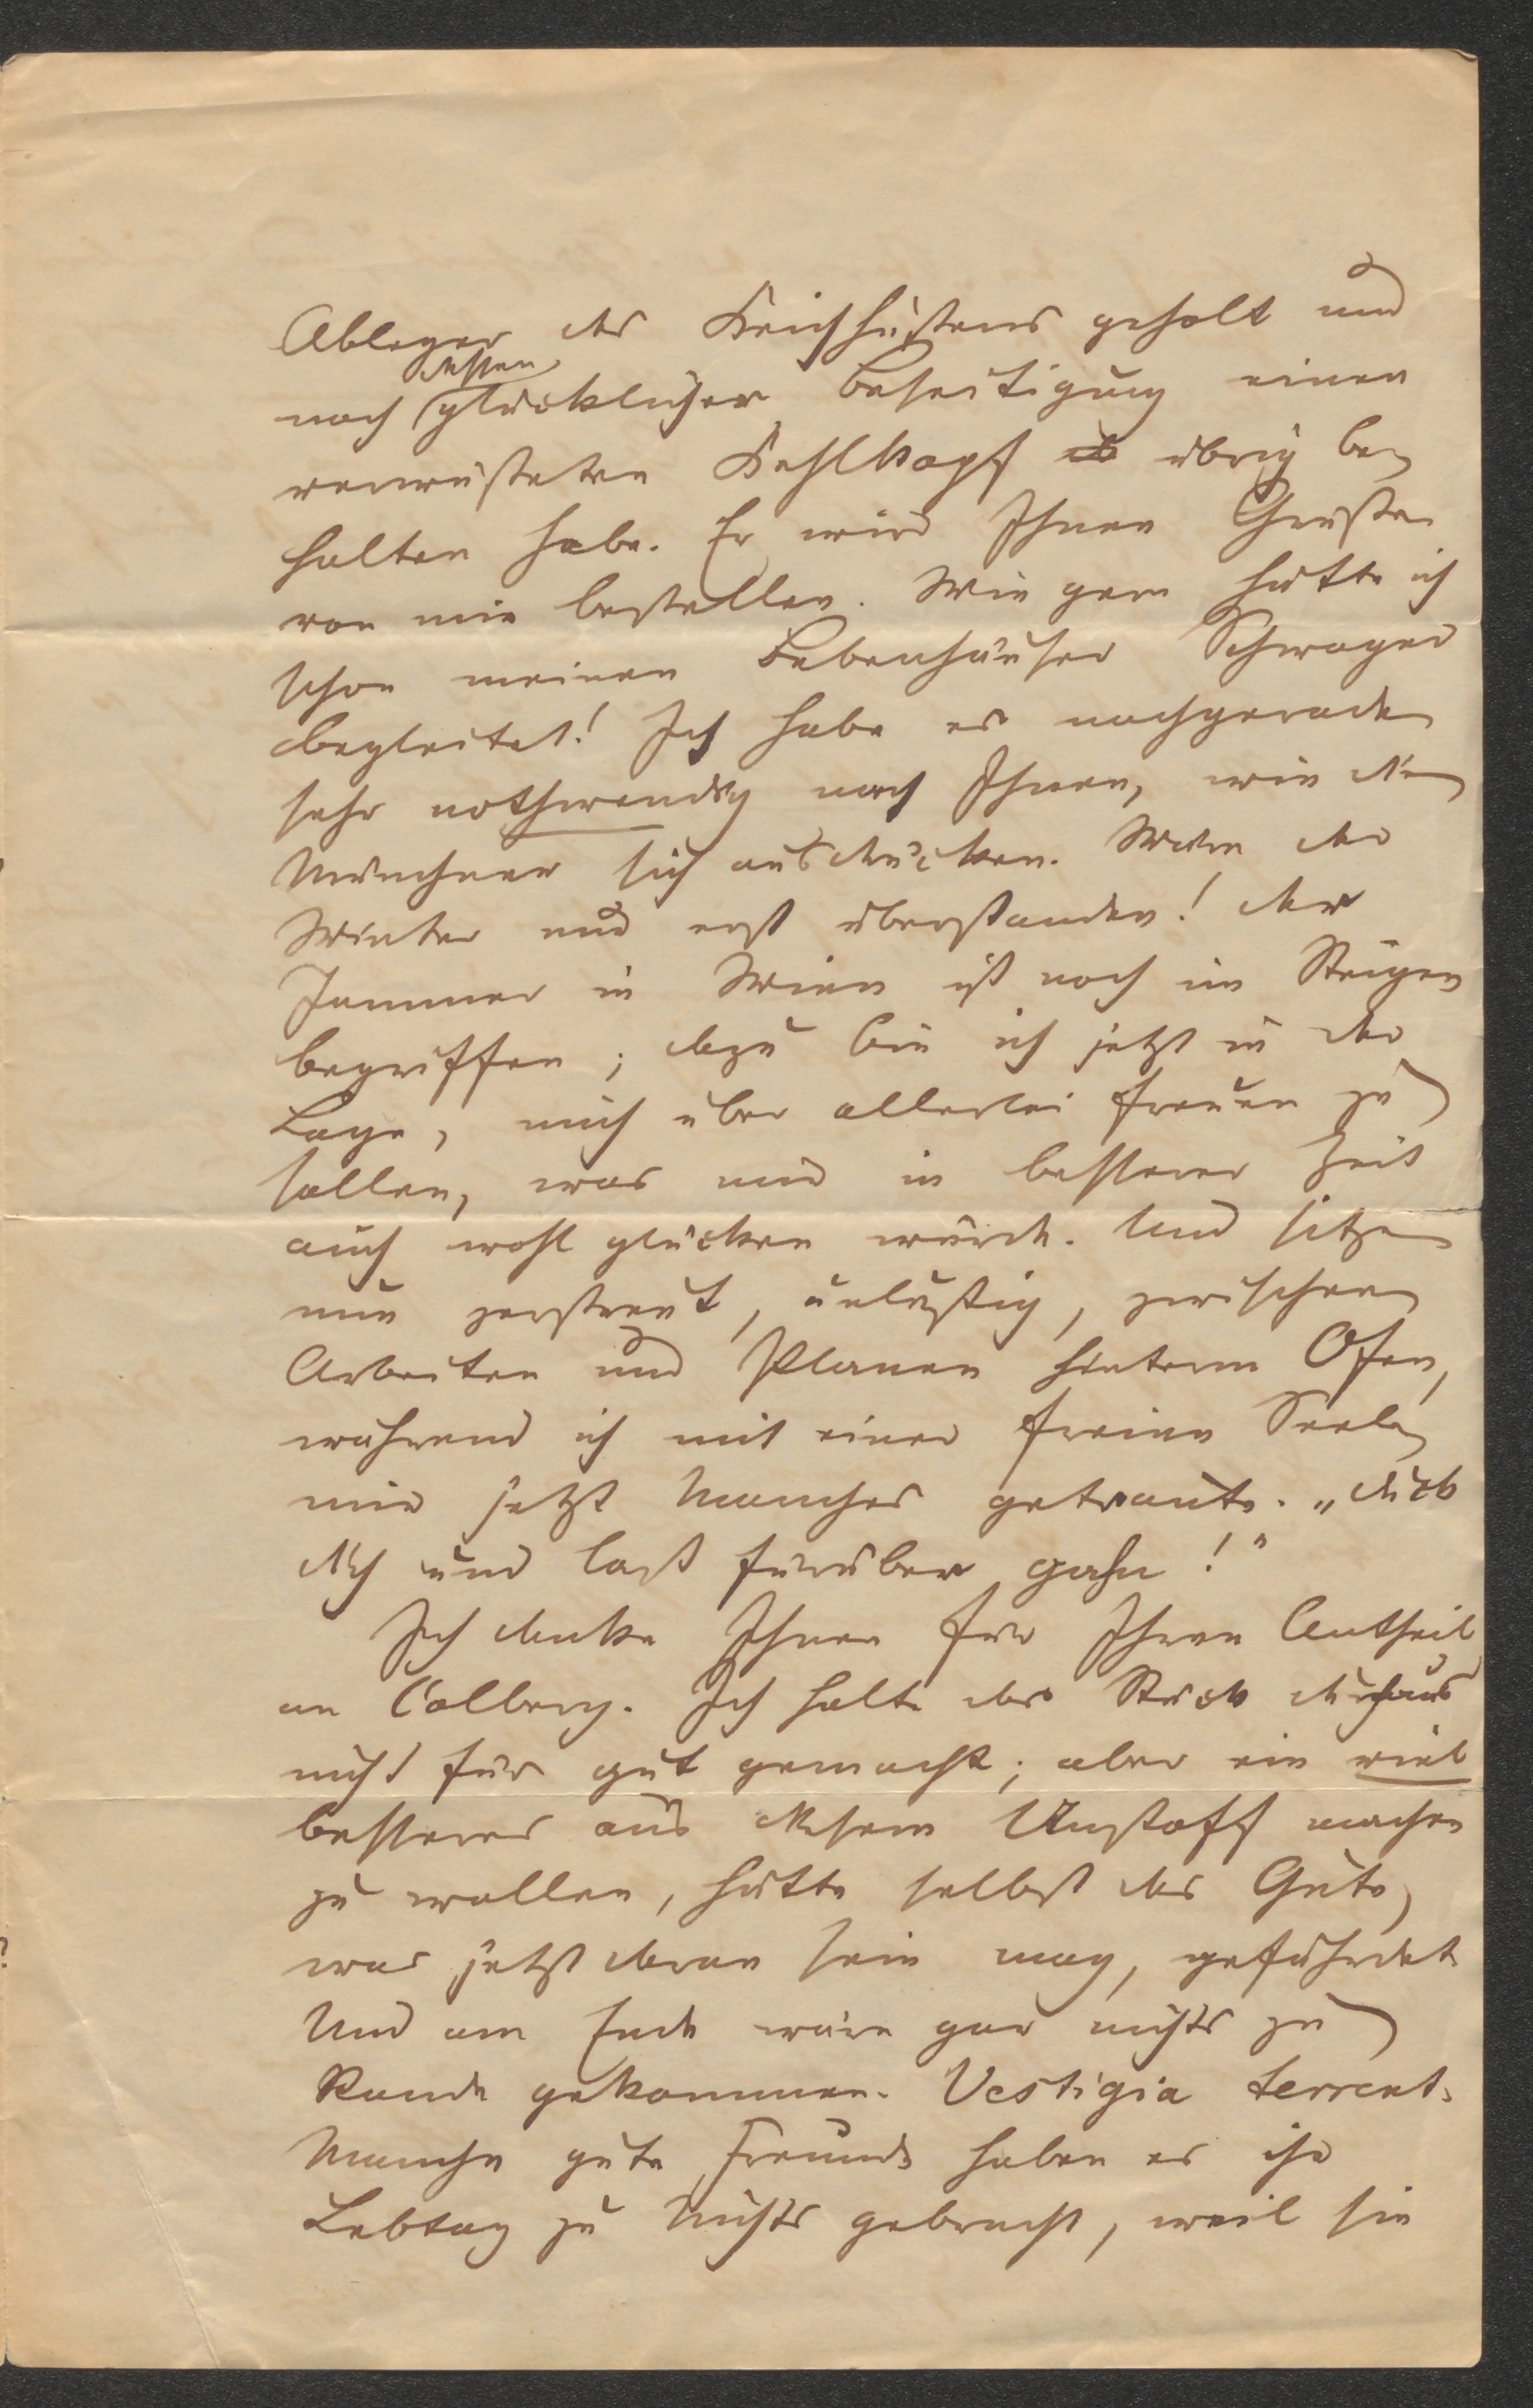 Ableger des Keichhustens geholt und
nach dessen glücklicher Beseitigung einen
verwüsteten Kehlkopf übrig be-
halten habe. Er wird Ihnen Grüße
von mir bestellen. Wie gern hätte ich
schon meinen Bebenhäuser Schwager
begleitet! Ich habe es nachgerade
sehr nothwendig nach Ihnen, wie die
Münchner sich ausdrücken. Wäre der
Winter nur erst überstanden! Der
Jammer in Wien ist noch im Steigen
begriffen; dazu bin ich jetzt in der
Lage, mich über allerlei freuen zu
sollen, was mir in besserer Zeit
auch wohl glücken würde. Und sitze
nun zerstreut, unlustig, zwischen
Arbeiten und Planen hinterm Ofen,
während ich mit einer freien Seele
mir jetzt Manches getraute. „Duck
dich und laß fürüber gahn!"
Ich danke Ihnen für Ihren Antheil
an Colberg. Ich halte das Stück durchaus
nicht für gut gemacht; aber ein viel
besseres aus diesem Unstoff machen
zu wollen, hätte selbst das Gute,
was jetzt daran sein mag, gefährdet
Und am Ende wäre gar nichts zu
Rande gekommen. Vestigia terrent.
Manche gute Freunde haben es ihr
Lebtag zu Nichts gebracht, weil sie